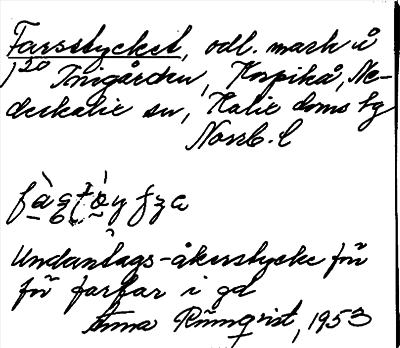 Farsstycket, odl. mark å
1²⁰ Inigården, Korpikå, Ne-
derkalix sn, Kalix doms hg
Norrb. l
Undantags-åkerstycke för
för farfar i gd
Anna Rönnqvist, 1953